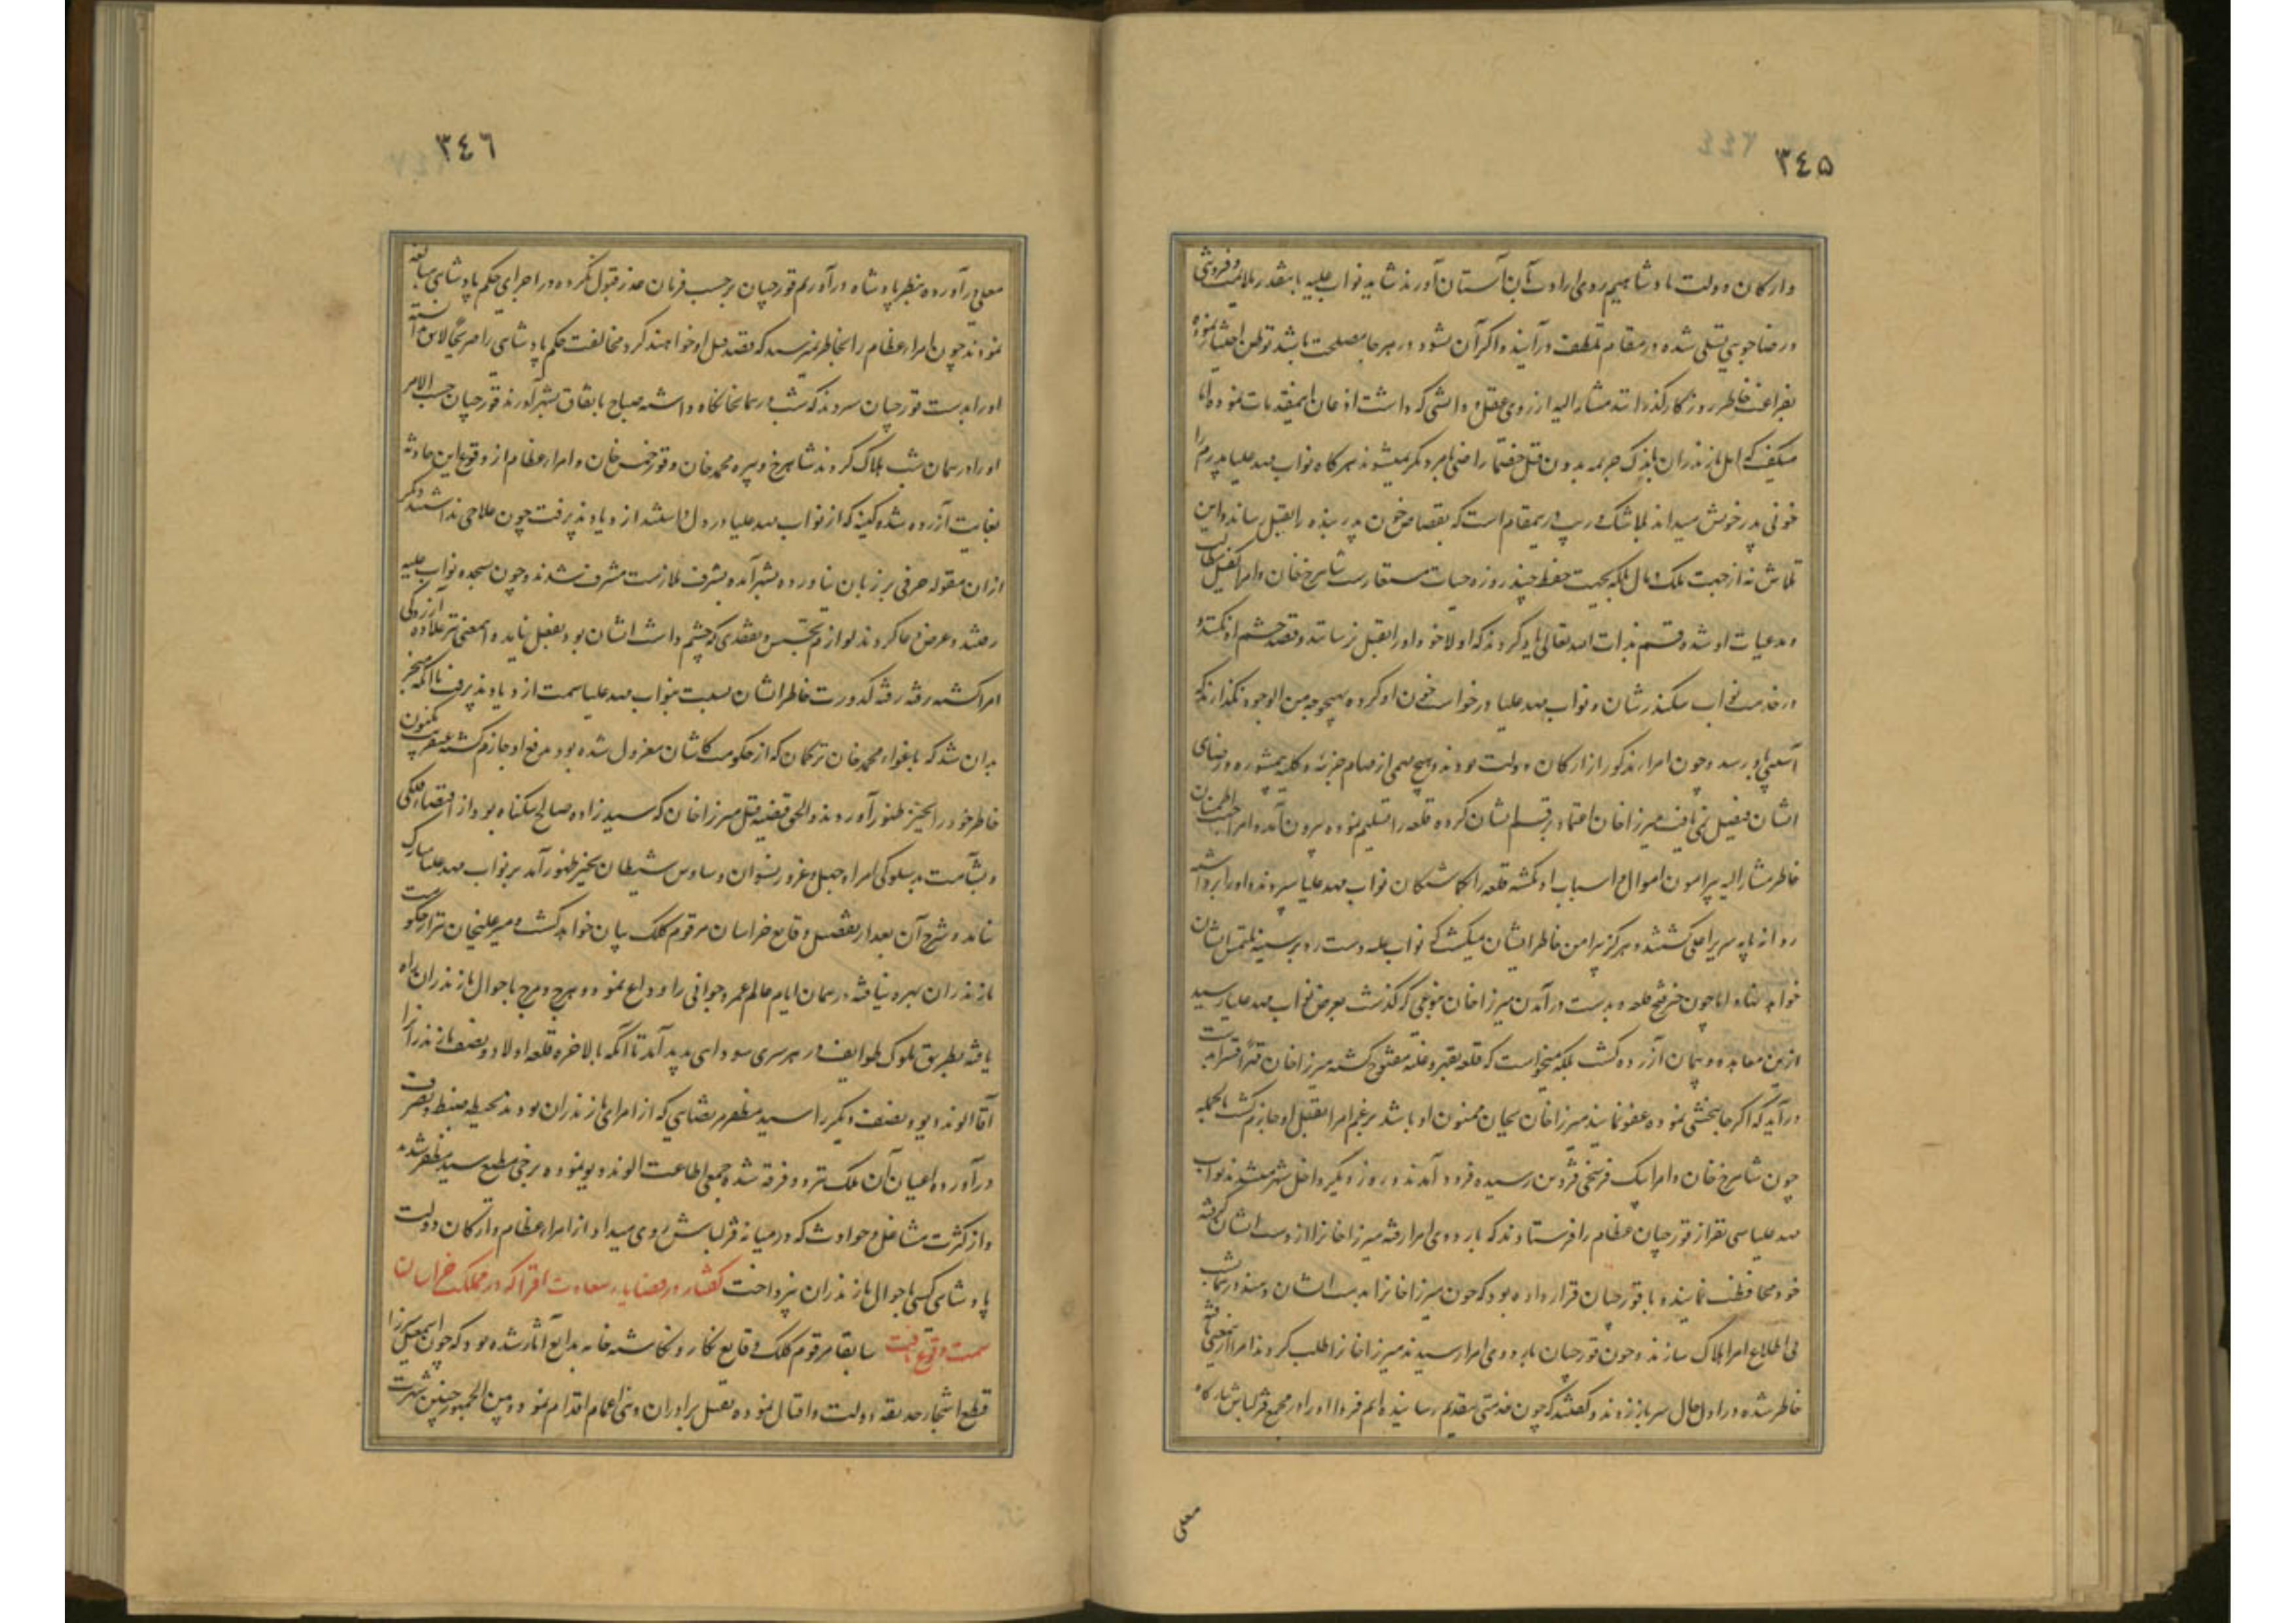 ۳٤۵
وارکان دولت پادشاهیم روی ارادت بآن آستان آورند شاید نواب علیه باینقدر ملایمت و فروتنی
و رضاجویی تسلی شده در مقام تلطف درآیند و اگر آن نشود در هر جا مصلحت باشد توطن اختیار نموده
بفراغت خاطر روزگار گذراند مشار الیه از روی عقل و دانشی که داشت اذعان اینمقدمات ننموده
میگفت که اهل مازندران باندک جریمه بدون قتل خصم راضی بامر دیگر نمیشوند هرگاه نواب مهد علیا پدرم را
خونی پدر خویش میداند بلاشک و ریب در مقام است که بقصاص خون پدر بنده را بقتل رساند و این
تلاش نه از جهت ملک و مال بلکه بجهت حفظ چند روزه حیات مستعارست شاهرخ خان و امرا کفیل مطالب
و مدعیات او شده قسم بذات الله تعالی یاد کردند که اولا خود او را بقتل نرسانند و قصد خشم او نکنند و
در خدمت نواب سکندر شان و نواب مهد علیا درخواست خون او کرده بهیچوجه من الوجوه نگذارند که
آسیبی باو رسد و چون امراء مذکور از ارکان دولت بودند و هیچ مهمی از مهام جزئیه و کلیه بیمشوره و رضای
ایشان فیصل نمی یافت میرزا خان اعتماد بر قسم ایشان کرده قلعه را تسلیم نموده بیرون آمد و امرا جهت اطمینان
خاطر مشار الیه پیرامون اموال و اسباب او نگشته قلعه را بگماشتگان نواب مهد علیا سپردند و او را برداشته
روانه پایه سریر اعلی گشتند و هرگز پیرامن خاطر ایشان نمیگشت که نواب علیه دست رد بر سینه ملتمس ایشان
خواهد نهاد اما چون خبر فتح قلعه و بدست درآمدن میرزا خان بنوعی که گذشت بعرض نواب مهد علیا رسید
ازین معاهده و پیمان آزرده گشت بلکه میخواست که قلعه بقهر و غلبه مفتوح گشته میرزا خان قهرا قسرا بدست
درآید که اگر جانبخشی نموده عفو نمایند میرزا خان بجان ممنون او باشد بر غم امرا بقتل او جازم گشت بالجمله
چون شاهرخ خان و امرا بیک فرسخی قزوین رسیده فرود آمدند و روز دیگر داخل شهر میشدند نواب
مهد علیا سی نفر از قورچیان عظام را فرستادند که باردوی امرا رفته میرزا خانرا از دست ایشان گرفته
خود محافظت نمایند و با قورچیان قرار داده بود که چون میرزا خانرا بدست ایشان دهند در همان شب
بی اطلاع امرا هلاک سازند و چون قورچیان باردوی امرا رسیدند میرزا خانرا طلب کردند امرا ازینمعنی
خاطر شده در اول حال سر باز زدند و گفتند که چون خدمتی بتقدیم رسانیده ایم فردا او را در مجمع قزلباش بارگاه
معلی
۳٤٦
معلی درآورده بنظر پادشاه درآوریم قورچیان بر حسب فرمان عذر قبول نکرده در اجرای حکم پادشاهی مبالغه
نمودند چون امراء عظام را بخاطر نمیرسید که قصد قتل او خواهند کرد مخالفت حکم پادشاهی را صریحا لایق ندانسته
او را بدست قورچیان سپردند که شب در همانجا نگاه داشته صباح باتفاق بشهر آورند قورچیان حسب الامر
او را در همان شب هلاک کردند شاهرخ و پیره محمد خان و قورخمس خان و امراء عظام از وقوع این حادثه
بغایت آزرده شده کینه که از نواب مهد علیا در دل داشتند ازدیاد پذیرفت چون علاجی نداشتند دیگر
ازان مقوله حرفی بر زبان نیاورده بشهر آمده بشرف ملازمت مشرف شدند و چون بسجده نواب علیه
رفتند و عرض دعا کردند لوازم تحسین و تفقدی که چشم داشت ایشان بود بفعل نیامد و اینمعنی نیز علاوه آزردگی
امرا گشته رفته رفته کدورت خاطر ایشان نسبت بنواب مهد علیا سمت ازدیاد پذیرفت تا آنکه منجر
بدان شد که باغواء محمد خان ترکمان که از حکومت کاشان معزول شده بود بر دفع او جازم گشته عنقریب مکنون
خاطر خود را بحیز ظهور آوردند و الحق قضیه قتل میرزا خان که سید زاده صالح بیگناه بود از اقتضاء فلکی
و بشآمت بدسلوکی امرا و جهل و غرور نسوان و وساوس شیطان بحیز ظهور آمد بر نواب مهد علیا مبارک
نیامد و شرح آن بعد از تفصیل وقایع خراسان مرقوم کلک بیان خواهد گشت و میر علیخان نیز از حکومت
مازندران بهره نیافته در همان ایام عالم عمر و جوانی را وداع نمود و هرج و مرج باحوال مازندران راه
یافته بطریق ملوک طوایف در هر سری سودایی پدید آمد تا آنکه بالاخره قلعه اولاد و نصف مازندران را
آقا الوند دیو و نصف دیگر را سید مظفر مرتضایی که از امرای مازندران بودند بحیطه ضبط و تصرف
درآورده اعیان آن ملک نیز دو فرقه شده جمعی اطاعت الوند دیو نموده برخی مطیع سید مظفر شدند
و از کثرت مشاغل و حوادث که در میانه قزلباش روی میداد از امراء عظام و ارکان دولت
پادشاهی کسی باحوال مازندران نپرداخت گفتار در قضایاء سعادت اقترا که در مملکت خراسان
سمت وقوع یافت سابقا مرقوم کلک وقایع نگار و نگاشته خامه بدایع آثار شده بود که چون اسمعیل میرزا
قطع اشجار حدیقه دولت و اقبال نموده بقتل برادران و بنی اعمام اقدام نمود و بین الجمهور چنین شهرت